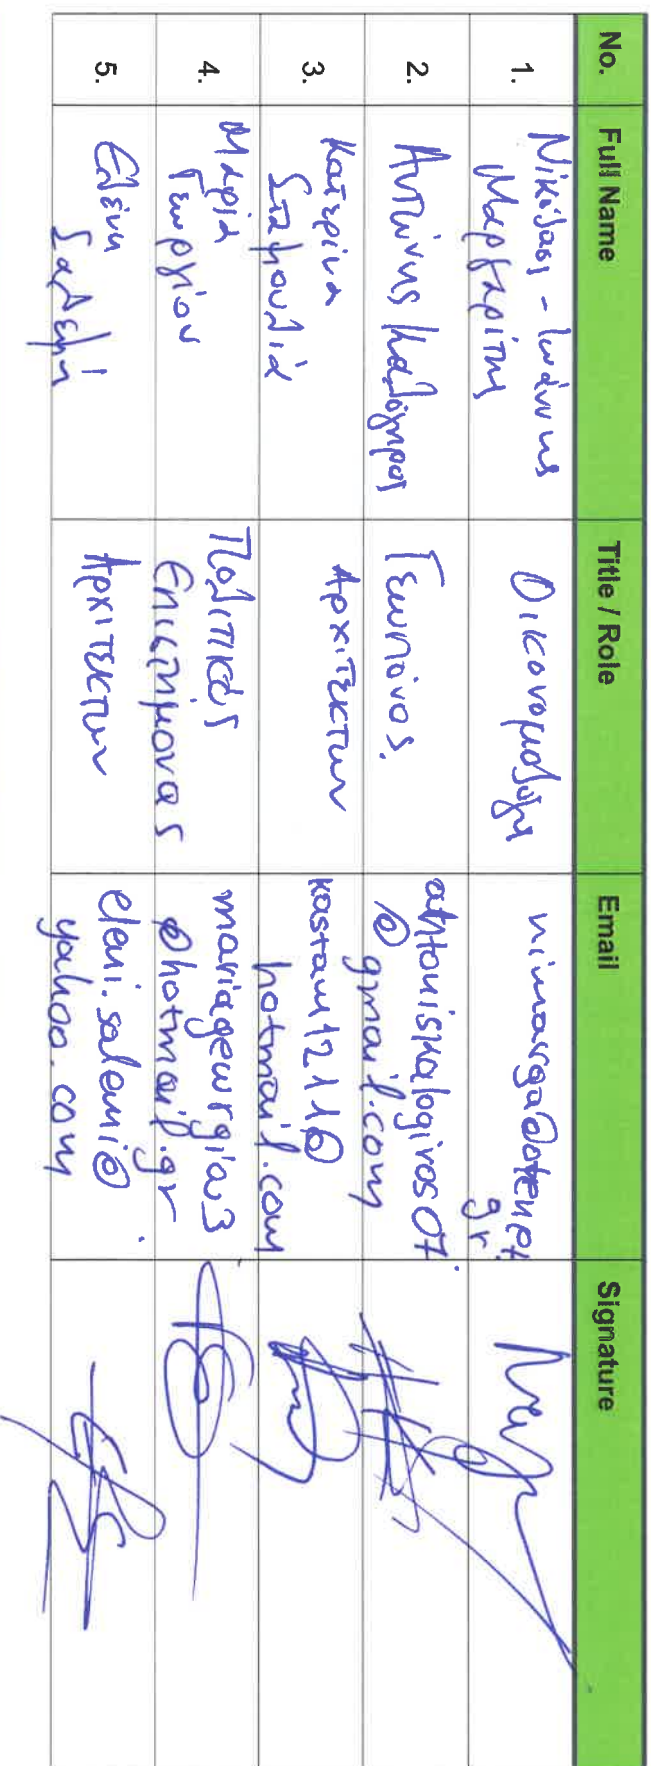 No. Full Name Title / Role Email Signature
1. Νικόλαος - Ιωάννης
Μαργαρίτης
Οικονομολόγος
nimarga@otenet.
gr
2. Αντώνης Καλόγηρος
Γεωπόνος.
antoniskalogiros07
@gmail.com
3. Κατερίνα
Σταμουλιά
Αρχιτέκτων
kastam1211@
hotmail.com
4. Μαρία
Γεωργίου
Πολιτικός
Επιστήμονας
mariagewrgiou3
@hotmail.gr
5. Ελένη
Σαλεμή
Αρχιτέκτων
eleni.salemi@
yahoo.com